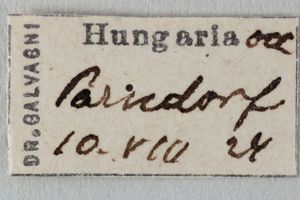 DR. GALVAGNI
Hungaria occ
Parndorf
10. VIII 24